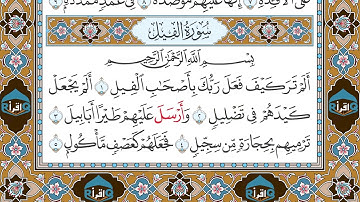 عَلَى ٱلْأَفْـِٔدَةِ ٧ إِنَّهَا عَلَيْهِم مُّؤْصَدَةٌ ٨ فِى عَمَدٍ مُّمَدَّدَةٍۭ ٩
سُورَةُ الفِيلِ
بِسْمِ ٱللَّهِ ٱلرَّحْمَٰنِ ٱلرَّحِيمِ
أَلَمْ تَرَ كَيْفَ فَعَلَ رَبُّكَ بِأَصْحَٰبِ ٱلْفِيلِ ١ أَلَمْ يَجْعَلْ
كَيْدَهُمْ فِى تَضْلِيلٍ ٢ وَأَرْسَلَ عَلَيْهِمْ طَيْرًا أَبَابِيلَ ٣
تَرْمِيهِم بِحِجَارَةٍ مِّن سِجِّيلٍ ٤ فَجَعَلَهُمْ كَعَصْفٍ مَّأْكُولٍۭ ٥
اقرأ
اقرأ